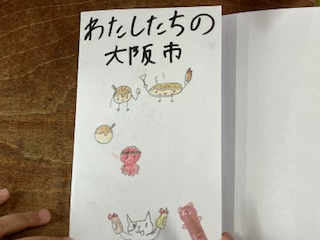 わたしたちの
大阪市